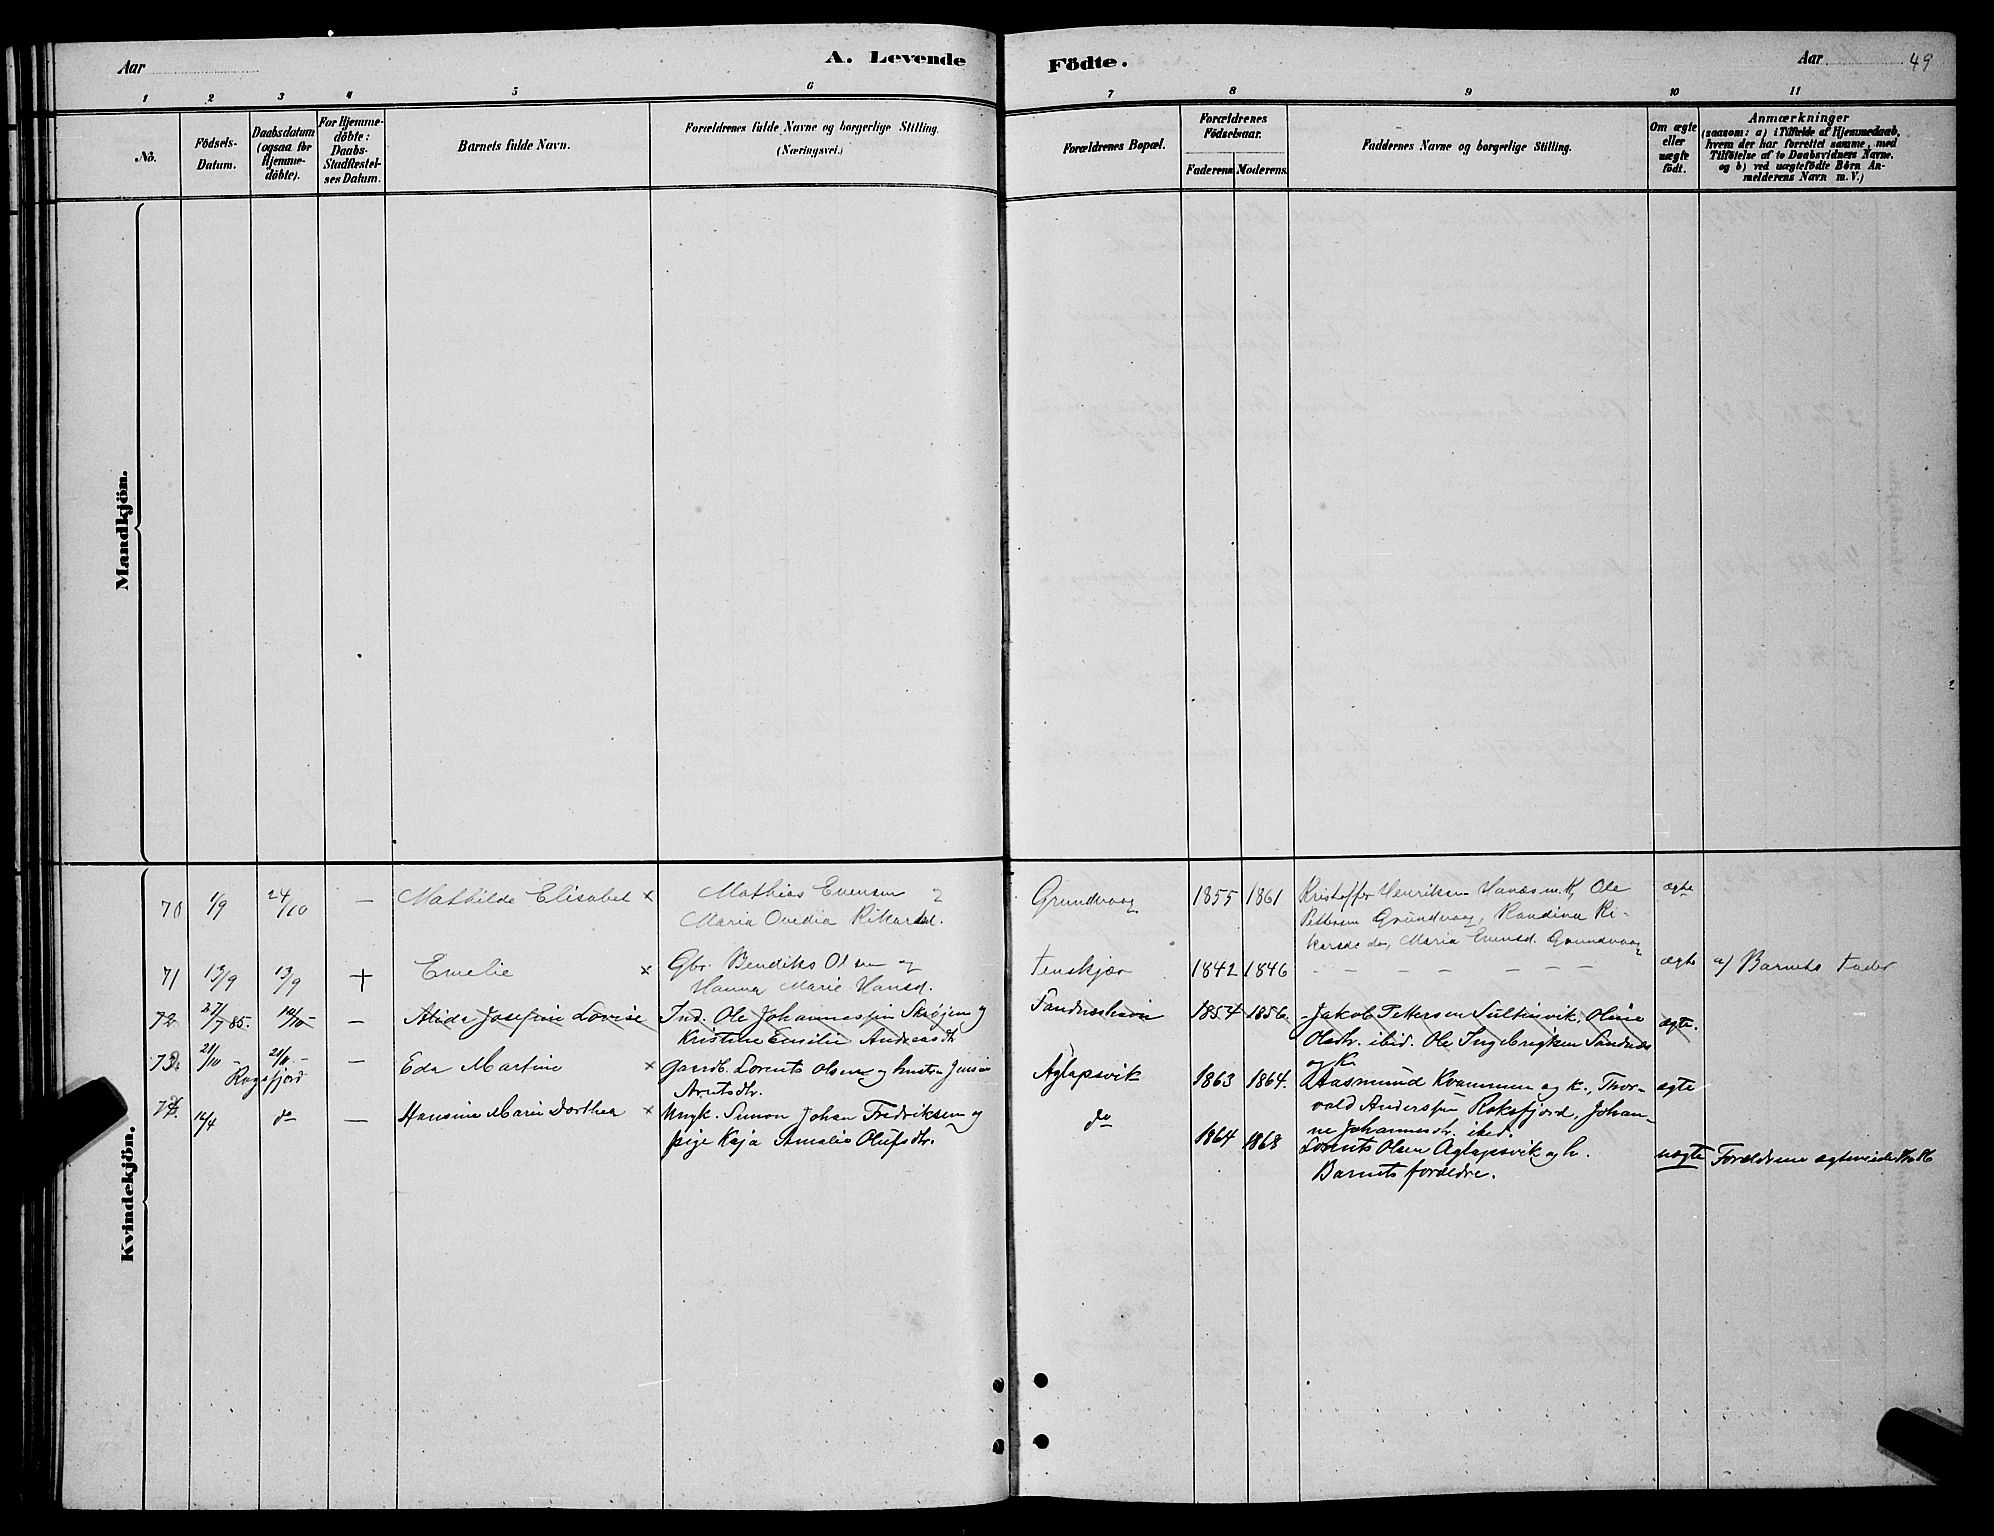 Aar
A. Levende
Födte.
Aar 49
1 2 3 4 5 6 7 8 9 10 11
No.
Födsels-
Datum.
Daabsdatum
(ogsaa for
Hjemme-
döbte).
For Hjemme-
döbte:
Daabs-
Stadfæstel-
ses Datum.
Barnets fulde Navn.
Forældrenes fulde Navne og borgerlige Stilling.
(Næringsvei.)
Forældrenes Bopæl.
Forældrenes
Födselsaar.
Faderens Moderens
Faddernes Navne og borgerlige Stilling.
Om ægte
eller
uægte
födt.
Anmærkninger
(saasom: a) i Tilfælde af Hjemmedaab,
hvem der har forrettet samme, med
Tilföielse af to Daabsvidners Navne,
og b) ved uægtefödte Börn An-
melderens Navn m. V.)
Mandkjön.
Kvindekjön.
70 1/9 24/10 — Mathilde Elisabet x Mathias Evensen og
Maria Ovedia Rikardsd.
Grundvaag 1855 1861 Kristoffer Henriksen Hanæs m. K, Ole
Pettersen Grundvaag, Randina Ri-
karsds do, Maria Evensd. Grundvaag
ægte
71 13/9 13/9 + Emelie x Gbr. Bendiks Olsen og
Hanna Marie Hansd.
Tenskjær 1842 1846 — — — — — — ægte a) Barnets Fader
72 27/7 85. — Alida Josefine Lovise Ind. Ole Johannessen Skøjen og
Kristine Emilie Andreasdtr
1854 1856. Jakob Pettersen Sultinvik, Oline
Olsdtr. ibid. Ole Ingebrigtsen Sandnes
og K.
ægte.
73 21/10 21/11 — Eda Martine x Gaardb. Lorents Olsen og hustru Jensine
Arntsdtr.
Rogsfjord
Aglapsvik 1863 1864. Aasmund Kvammen og k., Thor-
vald Anderssen Roksfjord, Johan-
ne Johannesdtr. ibid.
ægte
74. 14/4 do — Hansine Marie Dorthea x Ungk. Simon Johan Fredriksen og
pige Kaja Amalie Olufsdtr.
do 1864 1868 Lorents Olsen Aglapsvik og h.
Barnets forældre.
uægte Forældrene